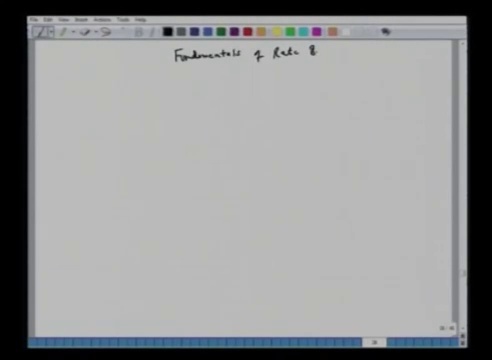 File Edit View Insert Actions Tools Help
Fundamentals of Rate &